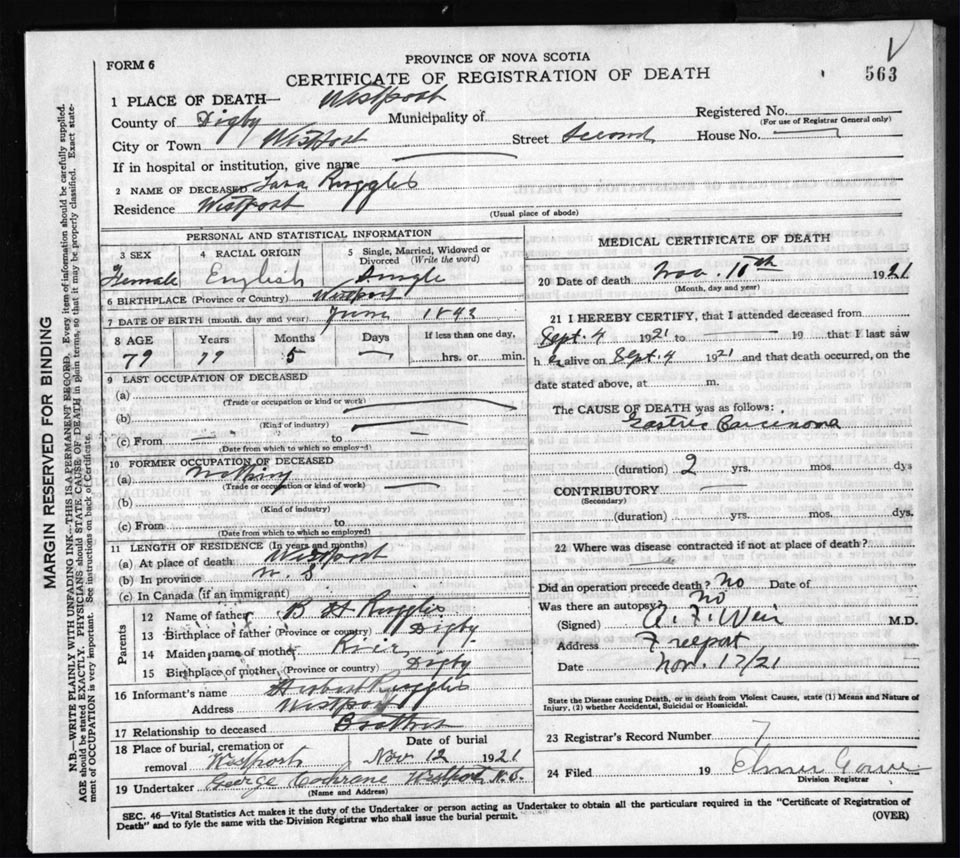 PROVINCE OF NOVA SCOTIA
FORM 6
CERTIFICATE OF REGISTRATION OF DEATH
563
1 PLACE OF DEATH— Westport
County of Digby Municipality of
Registered No.
(For use of Registrar General only)
City or Town Westport Street Second House No.
If in hospital or institution, give name
2 NAME OF DECEASED Ruggles
Residence Westport
(Usual place of abode)
PERSONAL AND STATISTICAL INFORMATION
3 SEX Female
4 RACIAL ORIGIN English
5 Single, Married, Widowed or Divorced (Write the word) Single
6 BIRTHPLACE (Province or Country) Westport
7 DATE OF BIRTH (month, day and year) June 1842
8 AGE Years Months Days If less than one day,
79 79 5 — hrs. or min.
9 LAST OCCUPATION OF DECEASED
(a)
(Trade or occupation or kind of work)
(b)
(Kind of industry)
(c) From — to —
(Date from which to which so employed)
10 FORMER OCCUPATION OF DECEASED
(a)
(Trade or occupation or kind of work)
(b)
(Kind of industry)
(c) From to
(Date from which to which so employed)
11 LENGTH OF RESIDENCE (In years and months)
(a) At place of death Westport
(b) In province N. S
(c) In Canada (if an immigrant)
Parents
12 Name of father B H Ruggles
13 Birthplace of father (Province or country) Digby
14 Maiden name of mother
15 Birthplace of mother (Province or country) Digby
16 Informant's name Herbert Ruggles
Address Westport
17 Relationship to deceased Brother
18 Place of burial, cremation or removal Westport
Date of burial Nov 12 1921
19 Undertaker George Cochrane Westport N.S.
(Name and Address)
MEDICAL CERTIFICATE OF DEATH
20 Date of death Nov. 10th 1921
(Month, day and year)
21 I HEREBY CERTIFY, that I attended deceased from
Sept. 4 1921 to — 19 that I last saw
h er alive on Sept. 4 1921 and that death occurred, on the
date stated above, at m.
The CAUSE OF DEATH was as follows:
Gastric Carcinoma
(duration) 2 yrs. mos. dys
CONTRIBUTORY —
(Secondary)
(duration) yrs. mos. dys.
22 Where was disease contracted if not at place of death?
Did an operation precede death? No Date of
Was there an autopsy? No
(Signed) A. F. Weir M.D.
Address Freeport
Date Nov. 17/21
State the Disease causing Death, or in death from Violent Causes, state (1) Means and Nature of
Injury, (2) whether Accidental, Suicidal or Homicidal.
23 Registrar's Record Number 7
24 Filed 19 Elmer
Division Registrar
SEC. 46—Vital Statistics Act makes it the duty of the Undertaker or person acting as Undertaker to obtain all the particulars required in the "Certificate of Registration of
Death" and to fyle the same with the Division Registrar who shall issue the burial permit.
(OVER)
MARGIN RESERVED FOR BINDING
N.B.—WRITE PLAINLY WITH UNFADING INK—THIS IS A PERMANENT RECORD. Every item of information should be carefully supplied.
AGE should be stated EXACTLY. PHYSICIANS should STATE CAUSE OF DEATH in plain terms, so that it may be properly classified. Exact statement of OCCUPATION is very important. See instructions on back of Certificate.